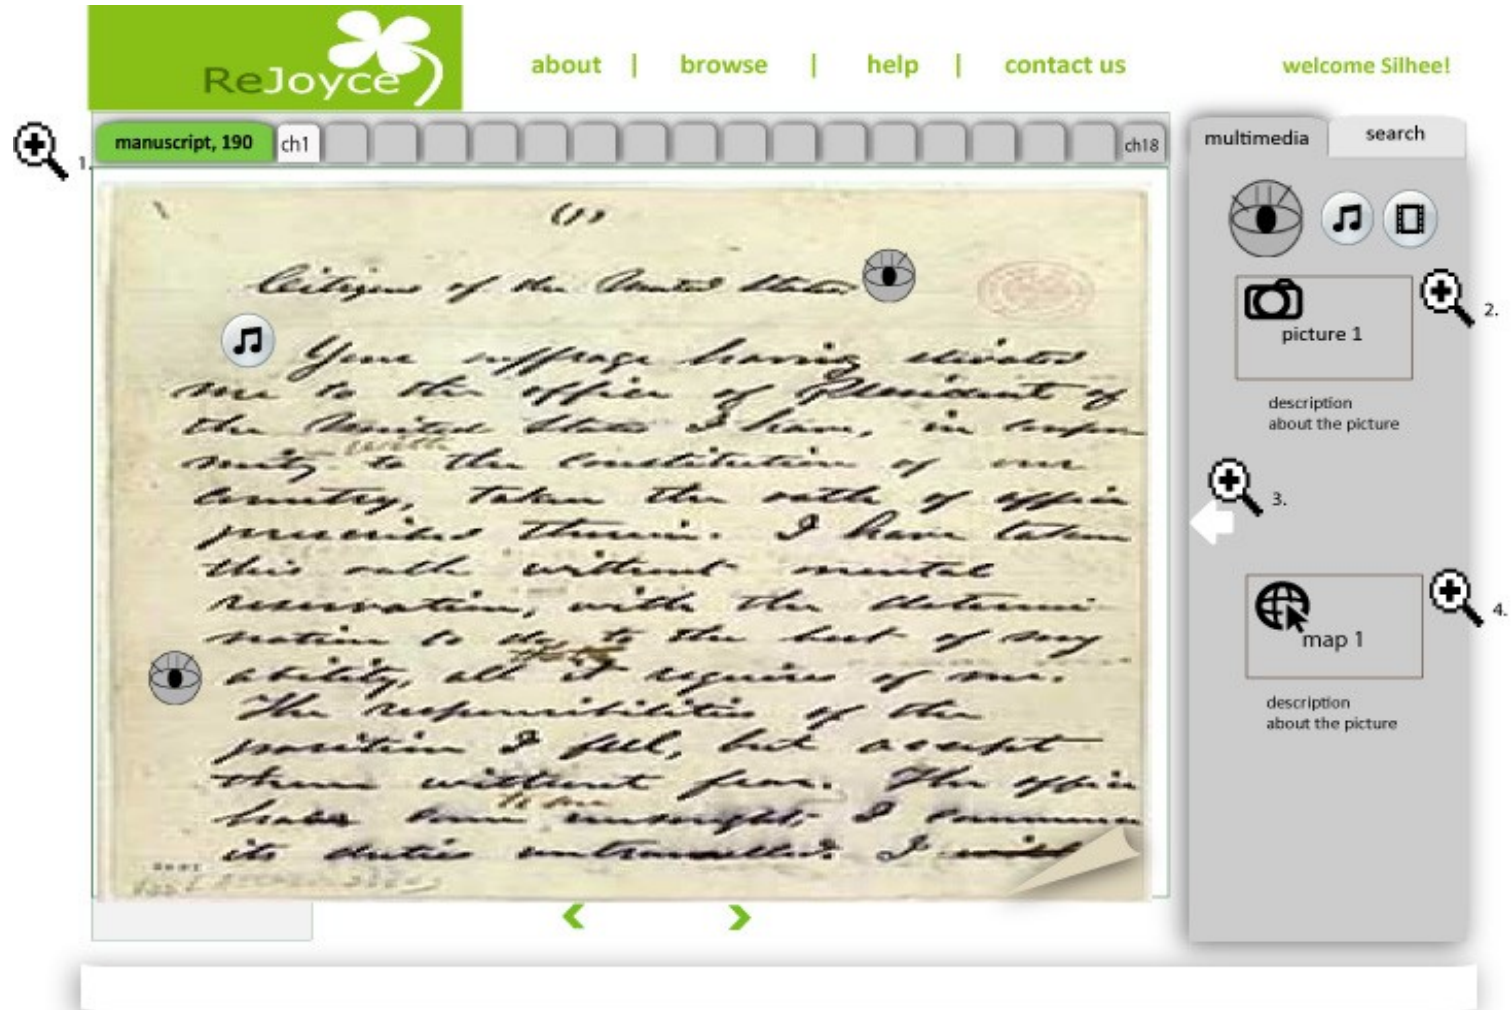 ReJoyce
about | browse | help | contact us
welcome Silhee!
manuscript, 190
ch1
ch18
1.
multimedia
search
(1)
Citizens of the United States
Your suffrage having elevated
me to the office of President of
the United States I have, in confor
mity with to the Constitution of our
Country, taken the oath of office
prescribed therein. I have taken
this oath without mental
reservation, with the determi
nation to do to the best of my
ability, all it requires of me.
The responsibilities of the
position I feel, but accept
them without fear. The office
has come to me unsought, I commence
its duties untrammeled. I
picture 1
2.
description
about the picture
3.
map 1
4.
description
about the picture